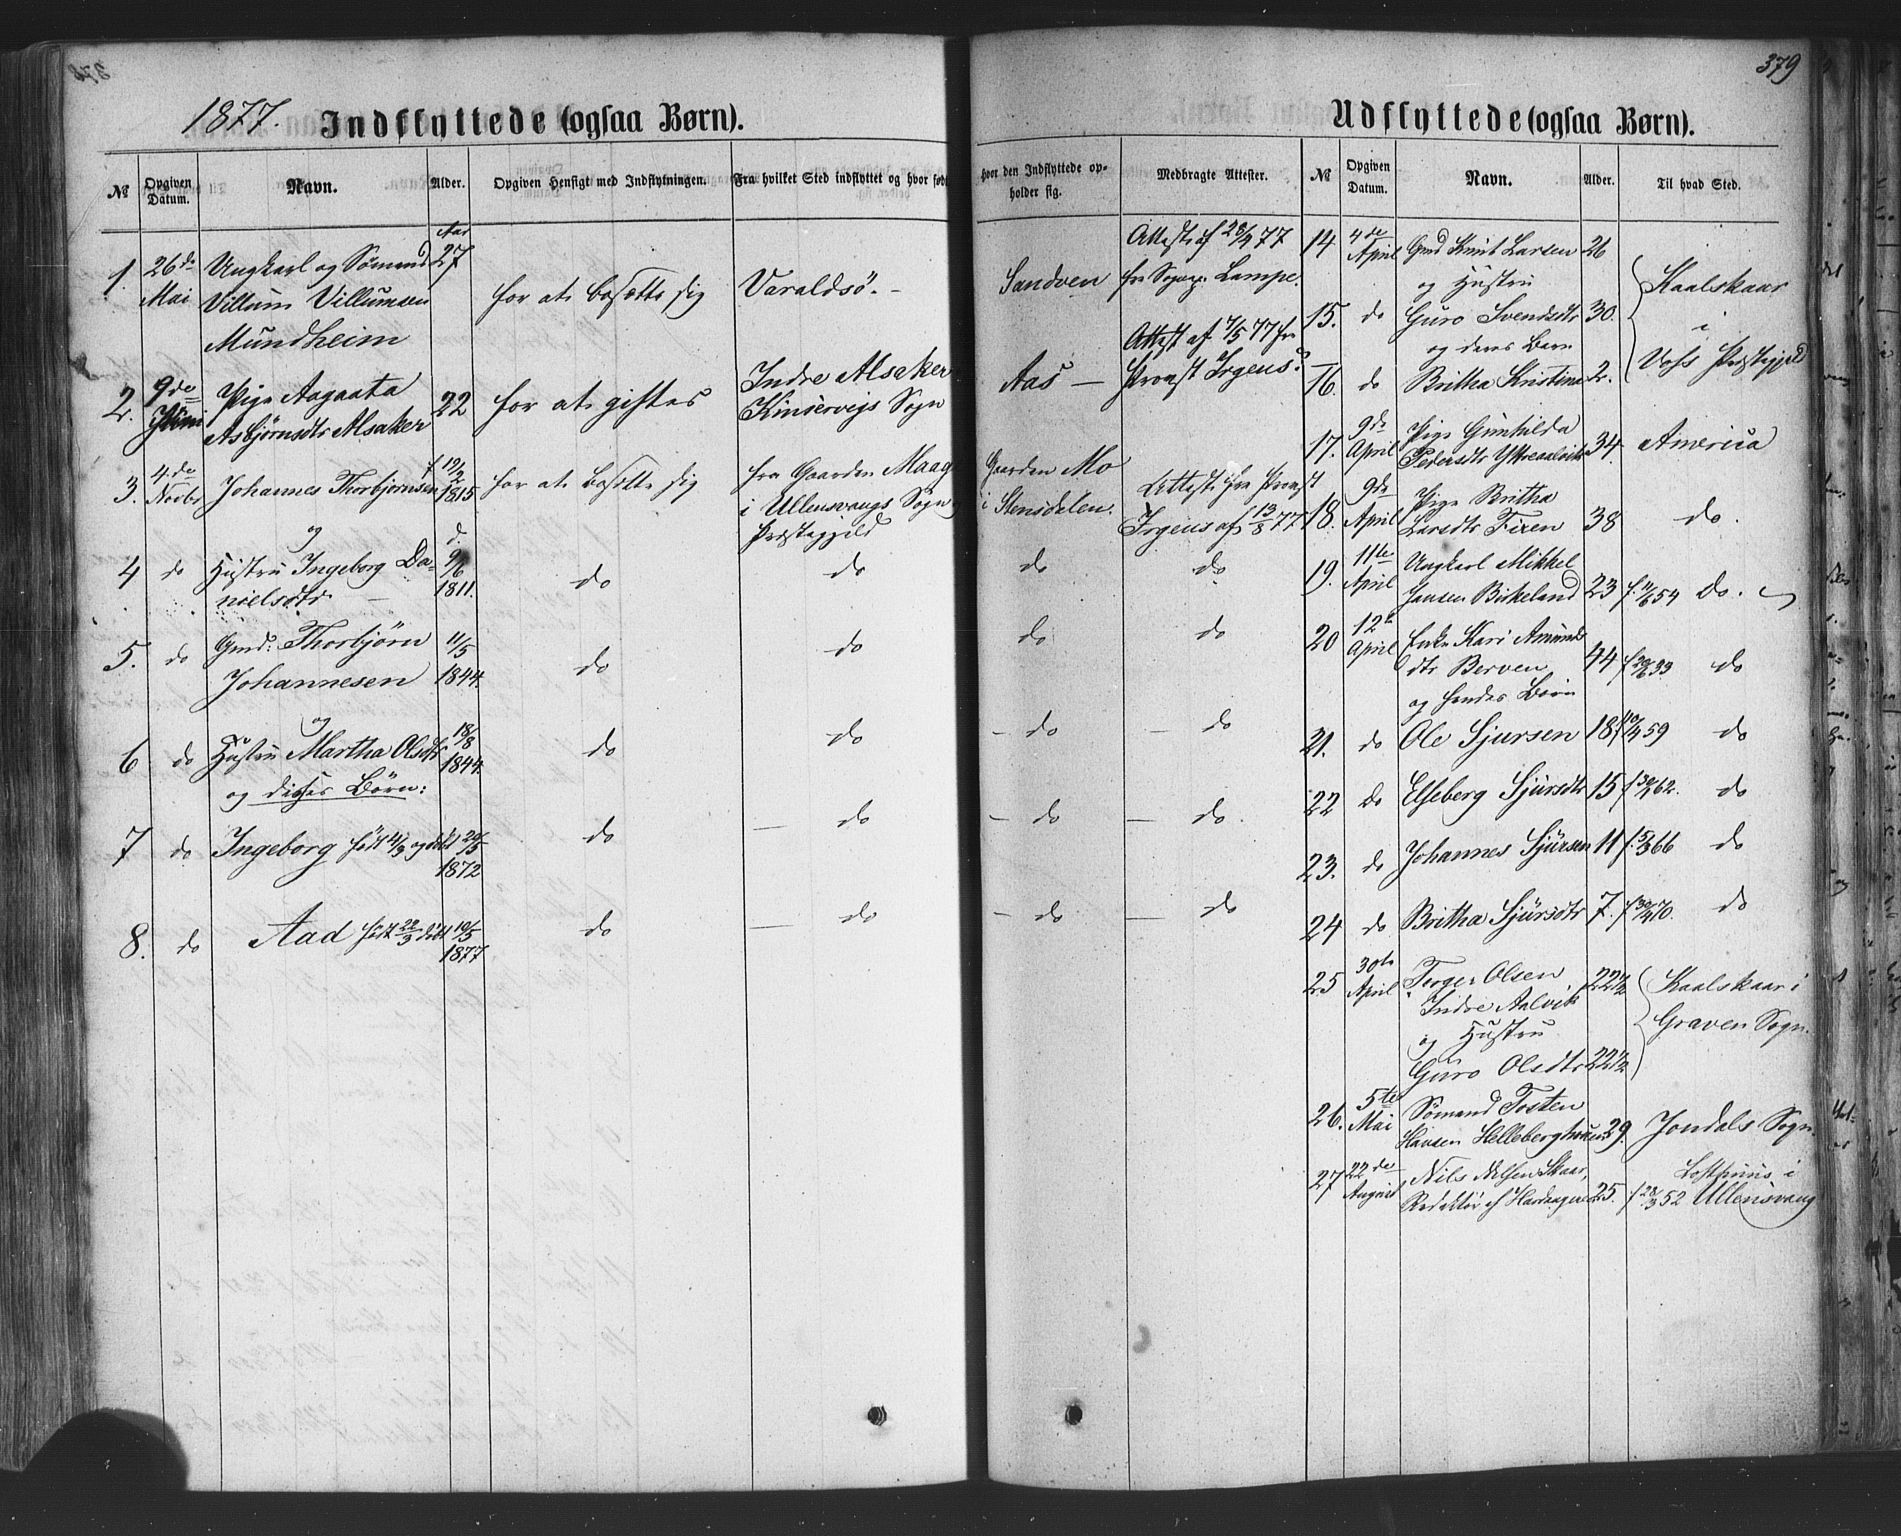 379
1877. Indflyttede (ogsaa Børn).
№ Opgiven Datum. Navn. Alder. Opgiven Hensigt med Indflytningen. Fra hvilket Sted indflyttet og hvor født
Hvor den Indflyttede opholder sig. Medbragte Attester.
Aar
1. 26de Ungkarl og Sömand 27
Mai Villum Villumsen for at bosætte sig Varaldsö. - Sandven Attest af 28/4 77
Mundheim fra Lampe.
2. 9de Pige Aagaata 22 for at giftes Indre Alsaker Aas — Attest af 7/5 77 fra
Juni Asbjörnsdtr Alsaker Kinservigs Sogn Provst Irgens.
3. 4de Johannes Thorbjörnsen f 19/2 for at bosætte sig fra Gaarden Maage Gaarden Mo Attest fra Provst
Novbr 1815 i Ullensvangs Sogn i Stensdalen. Irgens af 13/8 77
og Præstegjeld
4 do Hustru Ingeborg Da- d. 9/6 do do do do
nielsdtr — 1811.
5. do Gmd: Thorbjörn 11/5 do do do do
Johannesen 1844.
og
6 do Hustru Martha Olsdtr 18/8 do do - do - do
1844.
og disses Börn:
7 do Ingeborg født 4/3 og döbt 20/5 do — do - do — do.
1872
8. do Aad født 22/3 döbt 10/5 do — do - do — do
1877
Udflyttede (ogsaa Børn).
№ Opgiven Datum. Navn. Alder. Til hvad Sted.
14 4de Gmd Knut Larsen 26
April og Hustru Kaalskaar
15. do Guro Svendsdtr 30. i
og deres Barn Voss Præstegjeld
16. do Britha Kristina 2.
17. 9de Pige Gunhilda 34. America
April Pedersdtr
18. 9de Pige Britha 38 do.
April Larsdtr
19. 11te Ungkarl Mikkel
April Hansen Birkeland 23 f. 11/6 54 do.
20 12te Enke Kari Amunds
April dtr Berven 44 f 29/6 33 do
og hendes Börn
21. do Ole Sjursen 18 f 10/4 59 do
22 do Elseberg Sjursdtr 15 f 30/1 62. do
23. do Johannes Sjursen 11 f. 5/3 66 do
24 do Britha Sjursdtr 7. f 30/4 70. do
25 30te Torger Olsen 22½ Kaalskaar i
April Indre Aalvik Graven Sogn.
og Hustru
Guro Olsdtr 22½
26. 5te Sömand Tosten
Mai Hansen 29. Jondals Sogn.
27 22de Nils Skaar, Lofthuus i
August Redaktör af Hardangeren 25. f 28/3 52 Ullensvang